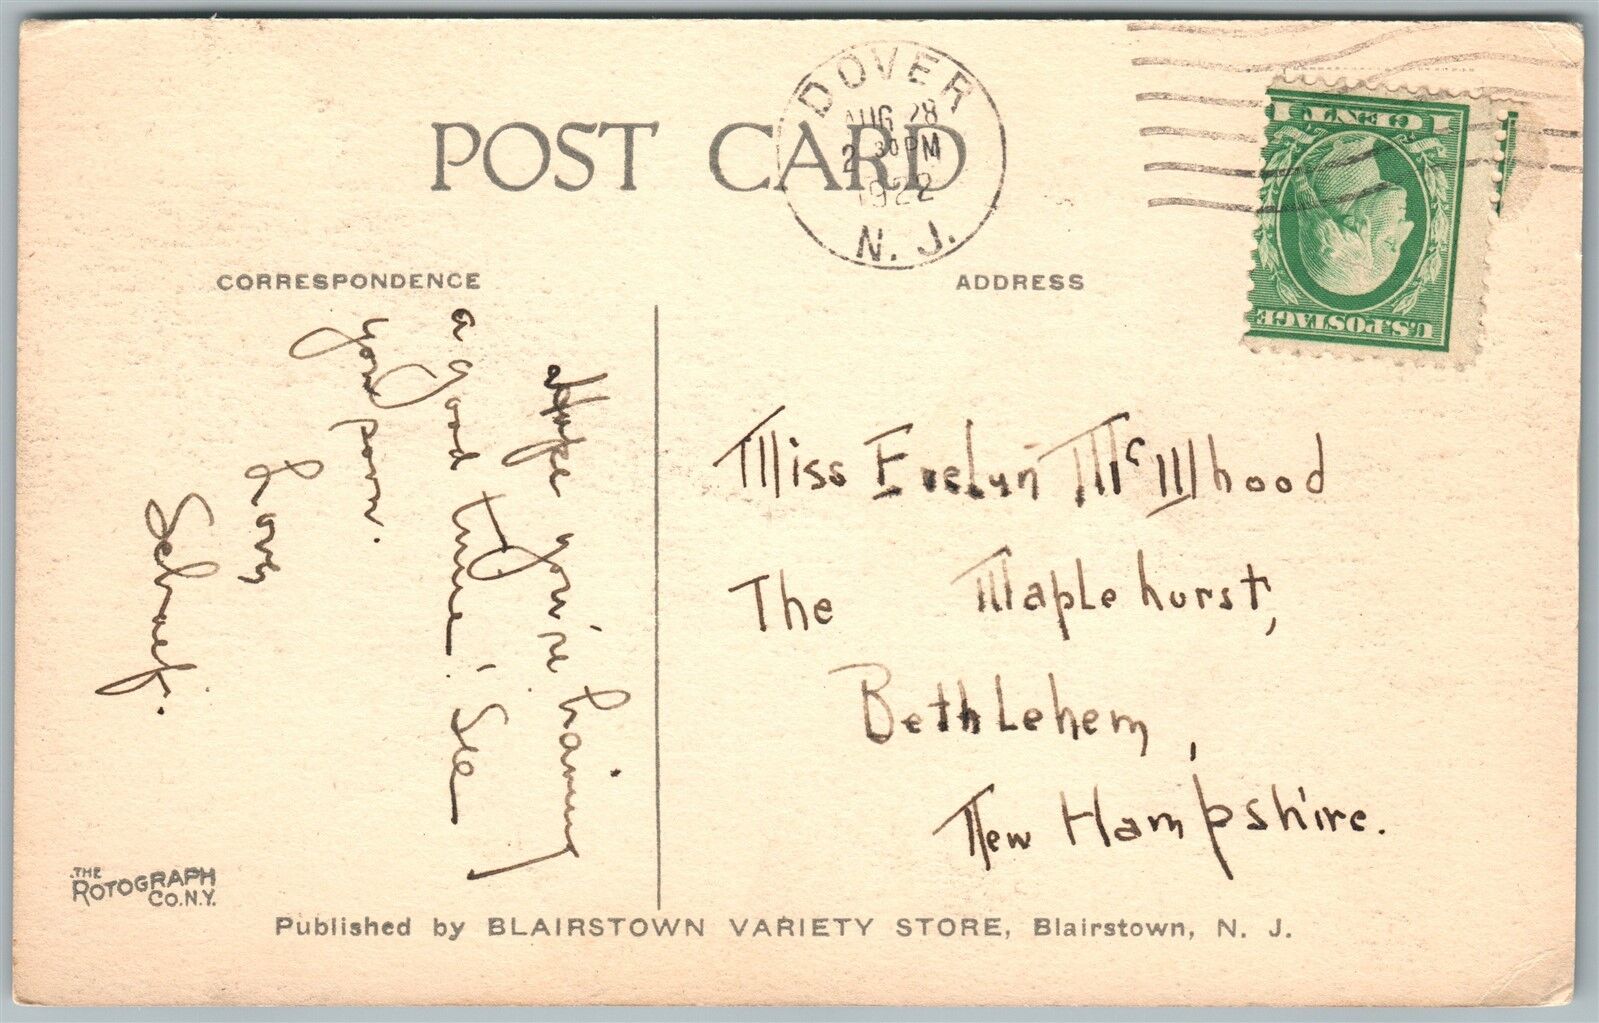 POST CARD
DOVER
AUG 28
2 30 PM
1922
N. J.
1 CENT 1
U.S. POSTAGE
CORRESPONDENCE
ADDRESS
Hope you're having
a good time! See
you
Love
Miss Evelyn McIlhood
The Maplehurst,
Bethlehem,
New Hampshire.
THE
ROTOGRAPH
CO. N.Y.
Published by BLAIRSTOWN VARIETY STORE, Blairstown, N. J.